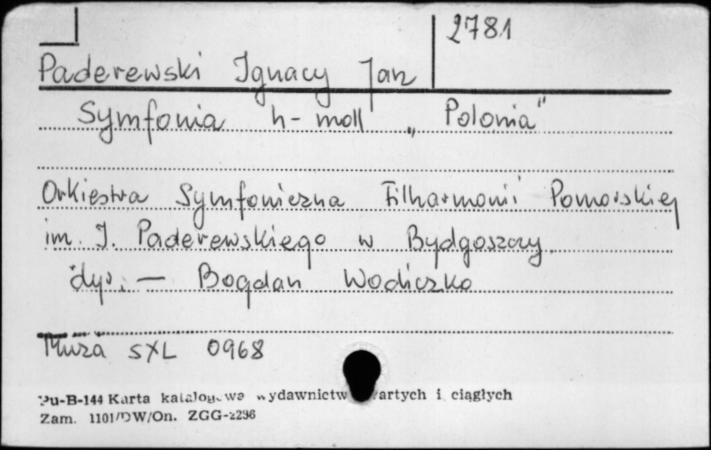 2781
Paderewski Ignacy Jan
Symfonia h-moll „Polonia"
Orkiestra Symfoniczna Filharmonii Pomorskiej
im. I. Paderewskiego w Bydgoszczy
dyr. — Bogdan Wodiczko
Muza SXL 0968
Pu-B-144 Karta katalogowa wydawnictw zwartych i ciągłych
Zam. 1101/DW/On. ZGG-2296